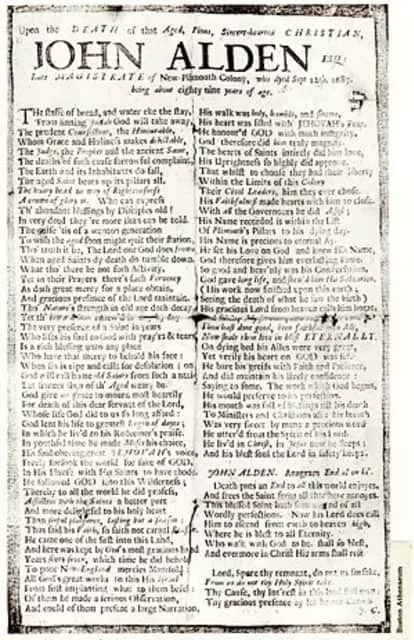 Upon the DEATH of that Aged, Pious, Sincere-hearted CHRISTIAN,
JOHN ALDEN ESQ:
Late MAGISTRATE of New-Plimouth Colony, who dyed Sept 12th. 1687.
being about eighty nine years of age.
The staffe of bread, and water eke the stay,
From sinning Judah God will take away,
The prudent Counsellour, the Honourable,
Whom Grace and Holiness makes
The Judge, the Prophet and the ancient Saint,
The deaths of such cause sorrowful complaint
The Earth and its Inhabitants do fall,
The aged Saint bears up its pillars all.
The hoary head in way of Righteousness
A crown of glory is. Who can express
Th' abundant blessings by Disciples old!
In very deed they're more than can be told.
The of a wanton generation
To wish the aged from might quit their station,
Tho' truth it be, The Lord our God does frown,
When aged Saints dy death do tumble down.
What tho' there be not such Activity,
Yet in their Prayers there's such Fervency
As doth great mercy for a place obtain,
And gracious presence of the Lord maintain.
Tho' Nature's strength in old age doth decay
The very presence of a Saint in years
Who lifts his soul to God with pray'rs & tears
Is a rich blessing unto any place
Who have that mercy to behold his face:
When is ripe and calls for desolation
God will call home old Saints from such a
Let sinners then of th' Aged weary be
God give me grace to mourn most heartily
For death of this dear servant of the Lord,
Whose life God did to us so long afford:
God lent his life to greatest of dayes;
In which he liv'd to his Redeemer's praise.
In youthful time he made his choice,
His Soul obeying great JEHOVAH'S voice,
Freely forsook the world for sake of GOD,
In His House with His Saints to have abode.
He followed GOD into this Wilderness;
Thereby to all the world he did profess,
Affliction with his Saints a better part
And more delightful to his holy heart
Than sinful pleasures, lasting but a season:
Thus said his Faith, so saith not carnal
He came one of the first into this Land,
And here was kept by God's most gracious hand
Years which time he did behold
To poor New-England mercies Manifold
All God's great works to this His Israel
From first implanting what to them befel:
Of them he made a serious Observation,
And could of them present a large Narration,
His walk was holy, humble, and sincere,
His heart was filled with JEHOVAH'S Fear,
He honour'd GOD with much integrity,
God therefore did him truly magnify.
The hearts of Saints intirely did him love,
His Uprightness so highly did approve.
That whilst to choose they had their liberty
Within the Limits of this Colony
Their Civil Leaders, him they ever chose.
His Faithfulness made hearts with him to close.
With all the Governours he did Assist;
His Name recorded is within the List
Of Plimouth's Pillars to his dying day.
His Name is precious to eternal Ay.
He set his Love on God and knew His Name,
God therefore gives him everlasting Fame.
So good and heav'nly was his Conversation,
God gave long life, and shew'd him His Salvation.
(His work now finished upon this earth;
Seeing the death of what he saw the birth)
His gracious Lord from heaven calls him home,
Thou hast done good, been faithful
Now shalt thou live in bliss ETERNALLY.
On dying bed his Ailes were very great,
Yet verily his heart on GOD was set.
He bare his griefs with Faith and Patience,
And did maintain a lively confidence:
Saying to some, The work which God begun,
He would preserve to its perfection.
His mouth was full of blessings till his death
To Ministers and Christians all: his breath
Was very sweet by many a precious word
He utter'd from the Spirit of his Lord.
He liv'd in Christ, in Jesus now he sleeps:
And his blest soul the Lord in safety keeps.
JOHN ALDEN. Anagram End al on hi.
Death puts an End to all this world enjoyes,
And frees the Saint from all that here annoyes.
This blessed Saint hath seen an end of all
Worldly perfections. Now his Lord does call
Him to ascend from earth to heaven high,
Where he is blest to all Eternity.
Who walk with God as he shall so be blest,
And evermore in Christ His arms shall rest.
Lord, Spare thy remnant, do not us forsake,
From us do not thy Holy Spirit take.
Thy Cause, thy int'rest in this land
Thy gracious presence ay let be our
J. C.
Boston Athenæum